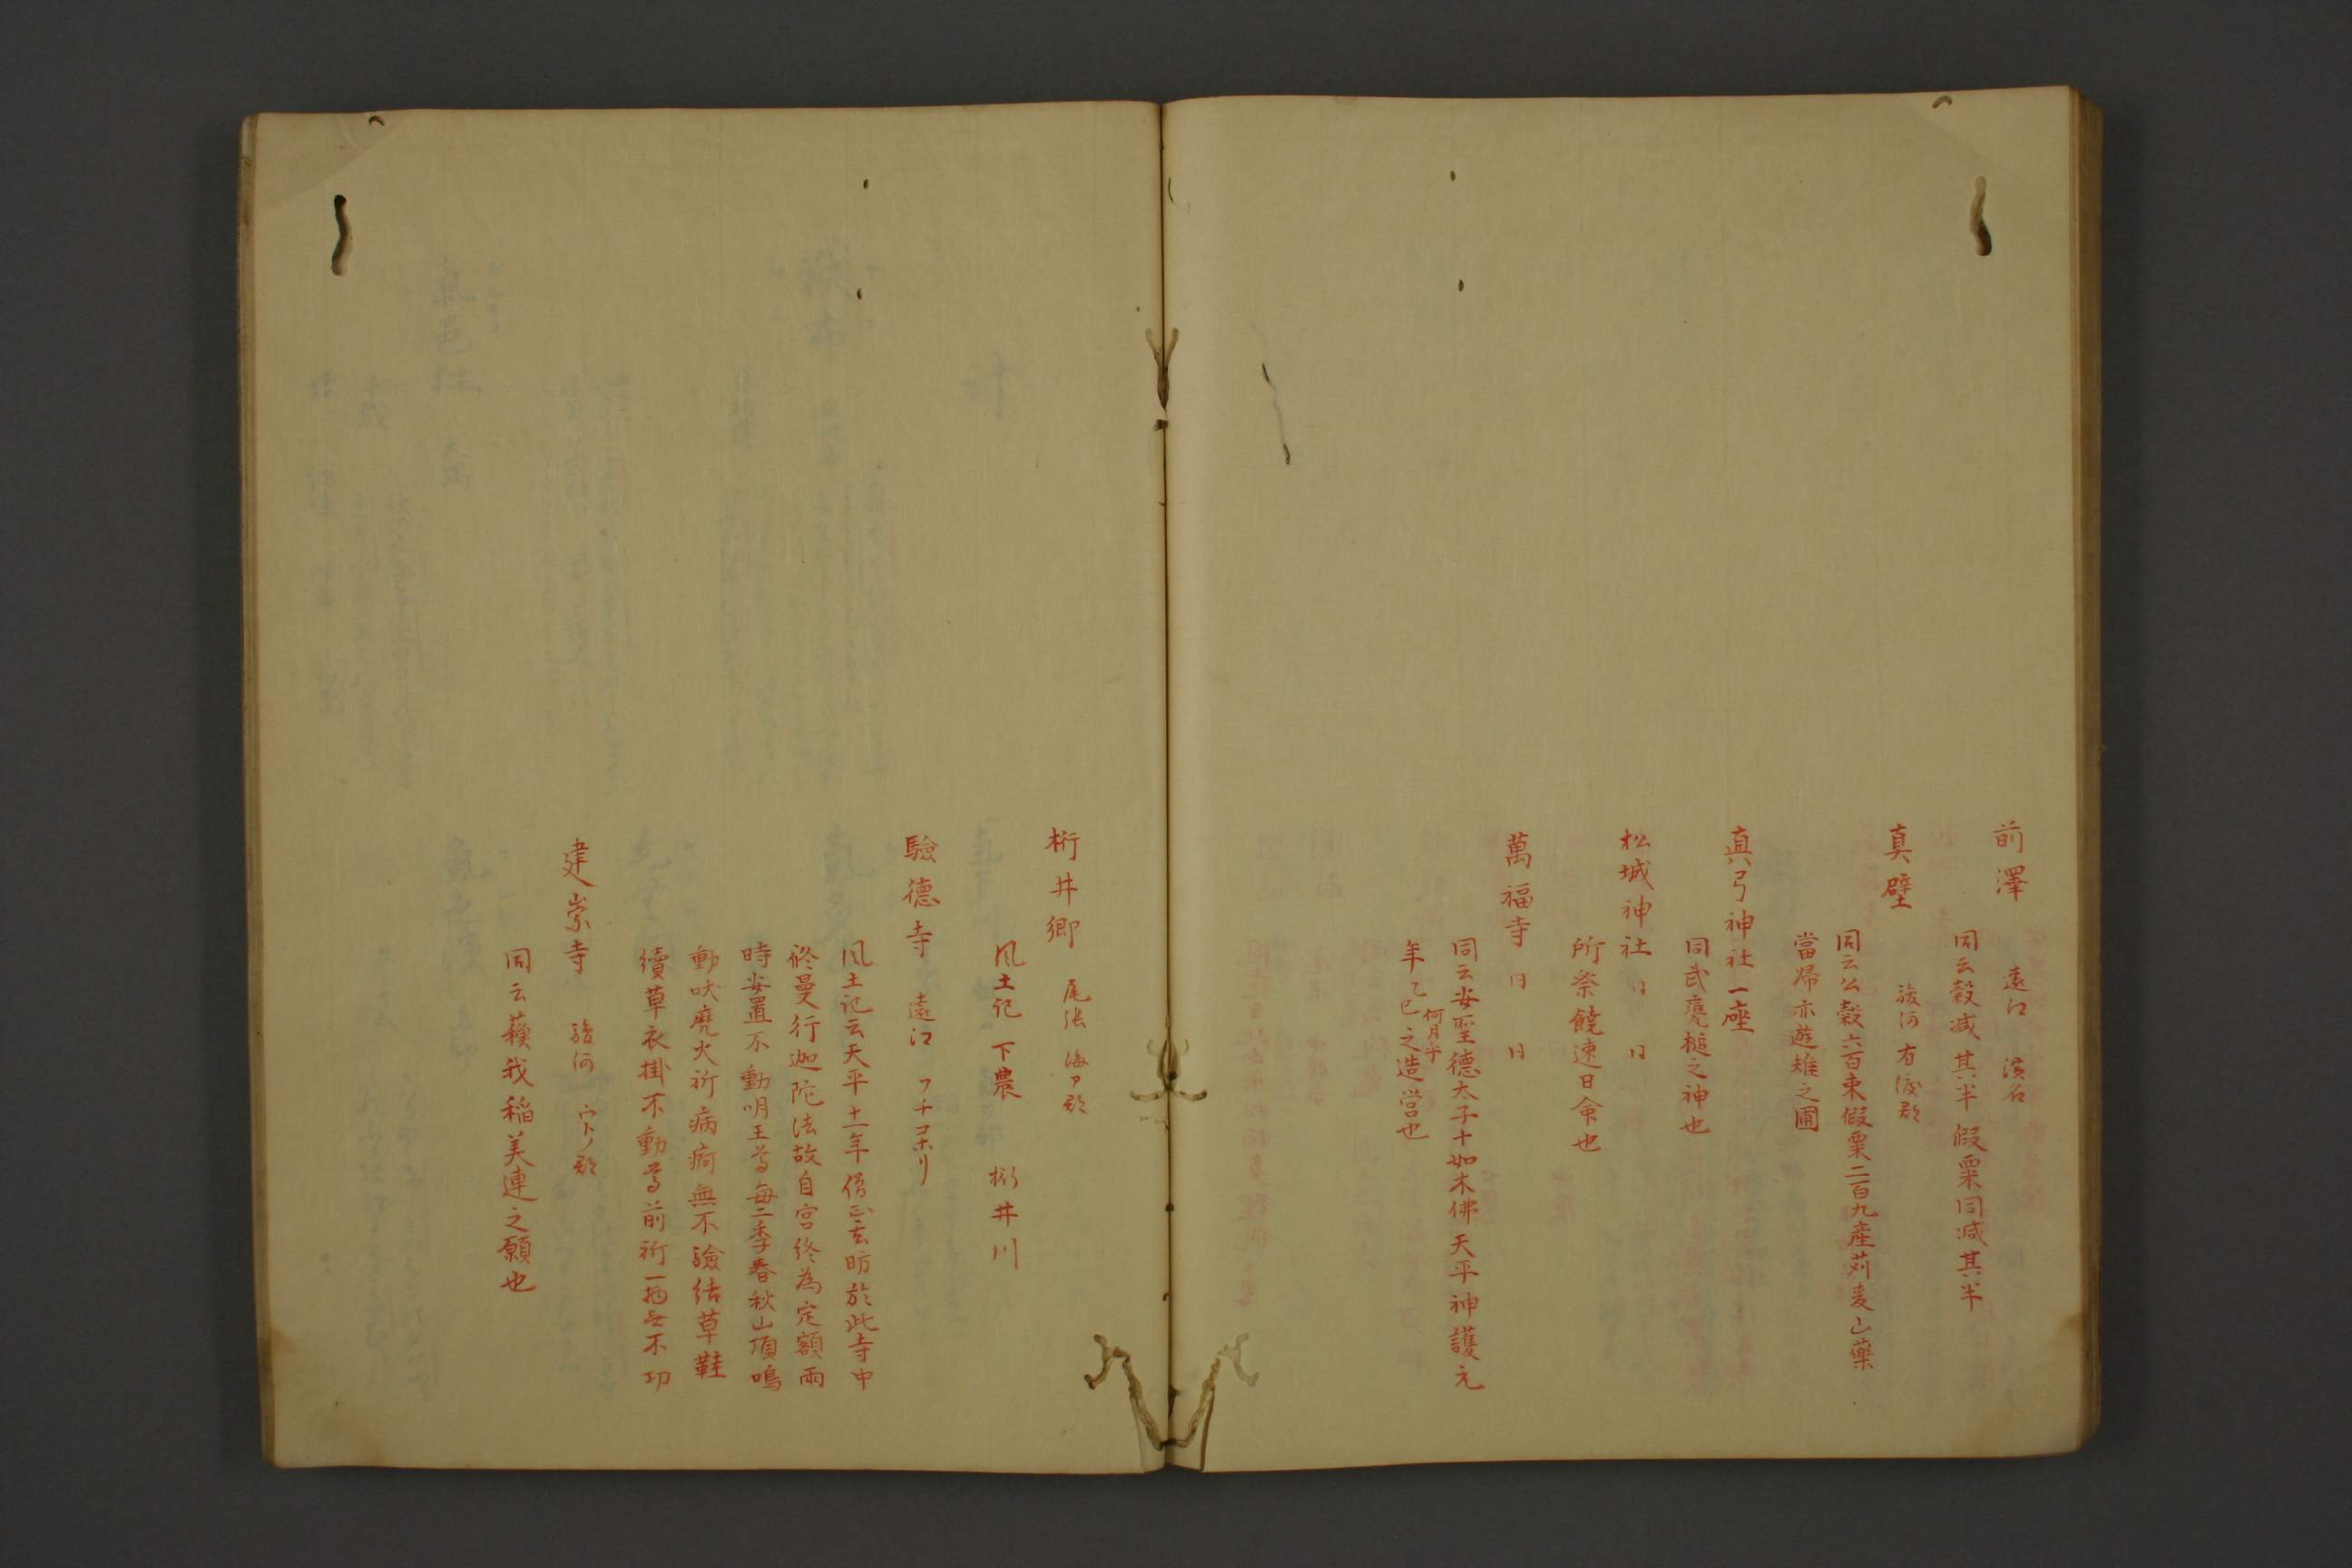 前澤 遠江 濱名
同云穀减其半假粟同减其半
真壁 駿河 有渡郡
同云公穀六百束假粟二百九産苅麦山藥
當帰亦遊雉之圃
真弓神社一座
同武甕槌之神也
松城神社 日 日
所祭饒速日命也
萬福寺 日 日
同云安聖德太子十如木佛天平神護元
年乙巳之造営也
何月乎
桁井郷 尾張 海ア郡
風土記 下農 桁井川
驗德寺 遠江 フチコホリ
風土記云天平十一年僧正玄昉於此寺中
修曼行迦陀法故自宮終為定額雨
時安置不動明王等每二季春秋山頂鳴
動吠魔火祈病痾無不驗結草鞋
續草衣掛不動等前祈一栖無不功
建崇寺 駿河 ウトノ郡
同云蘓我稲美連之願也